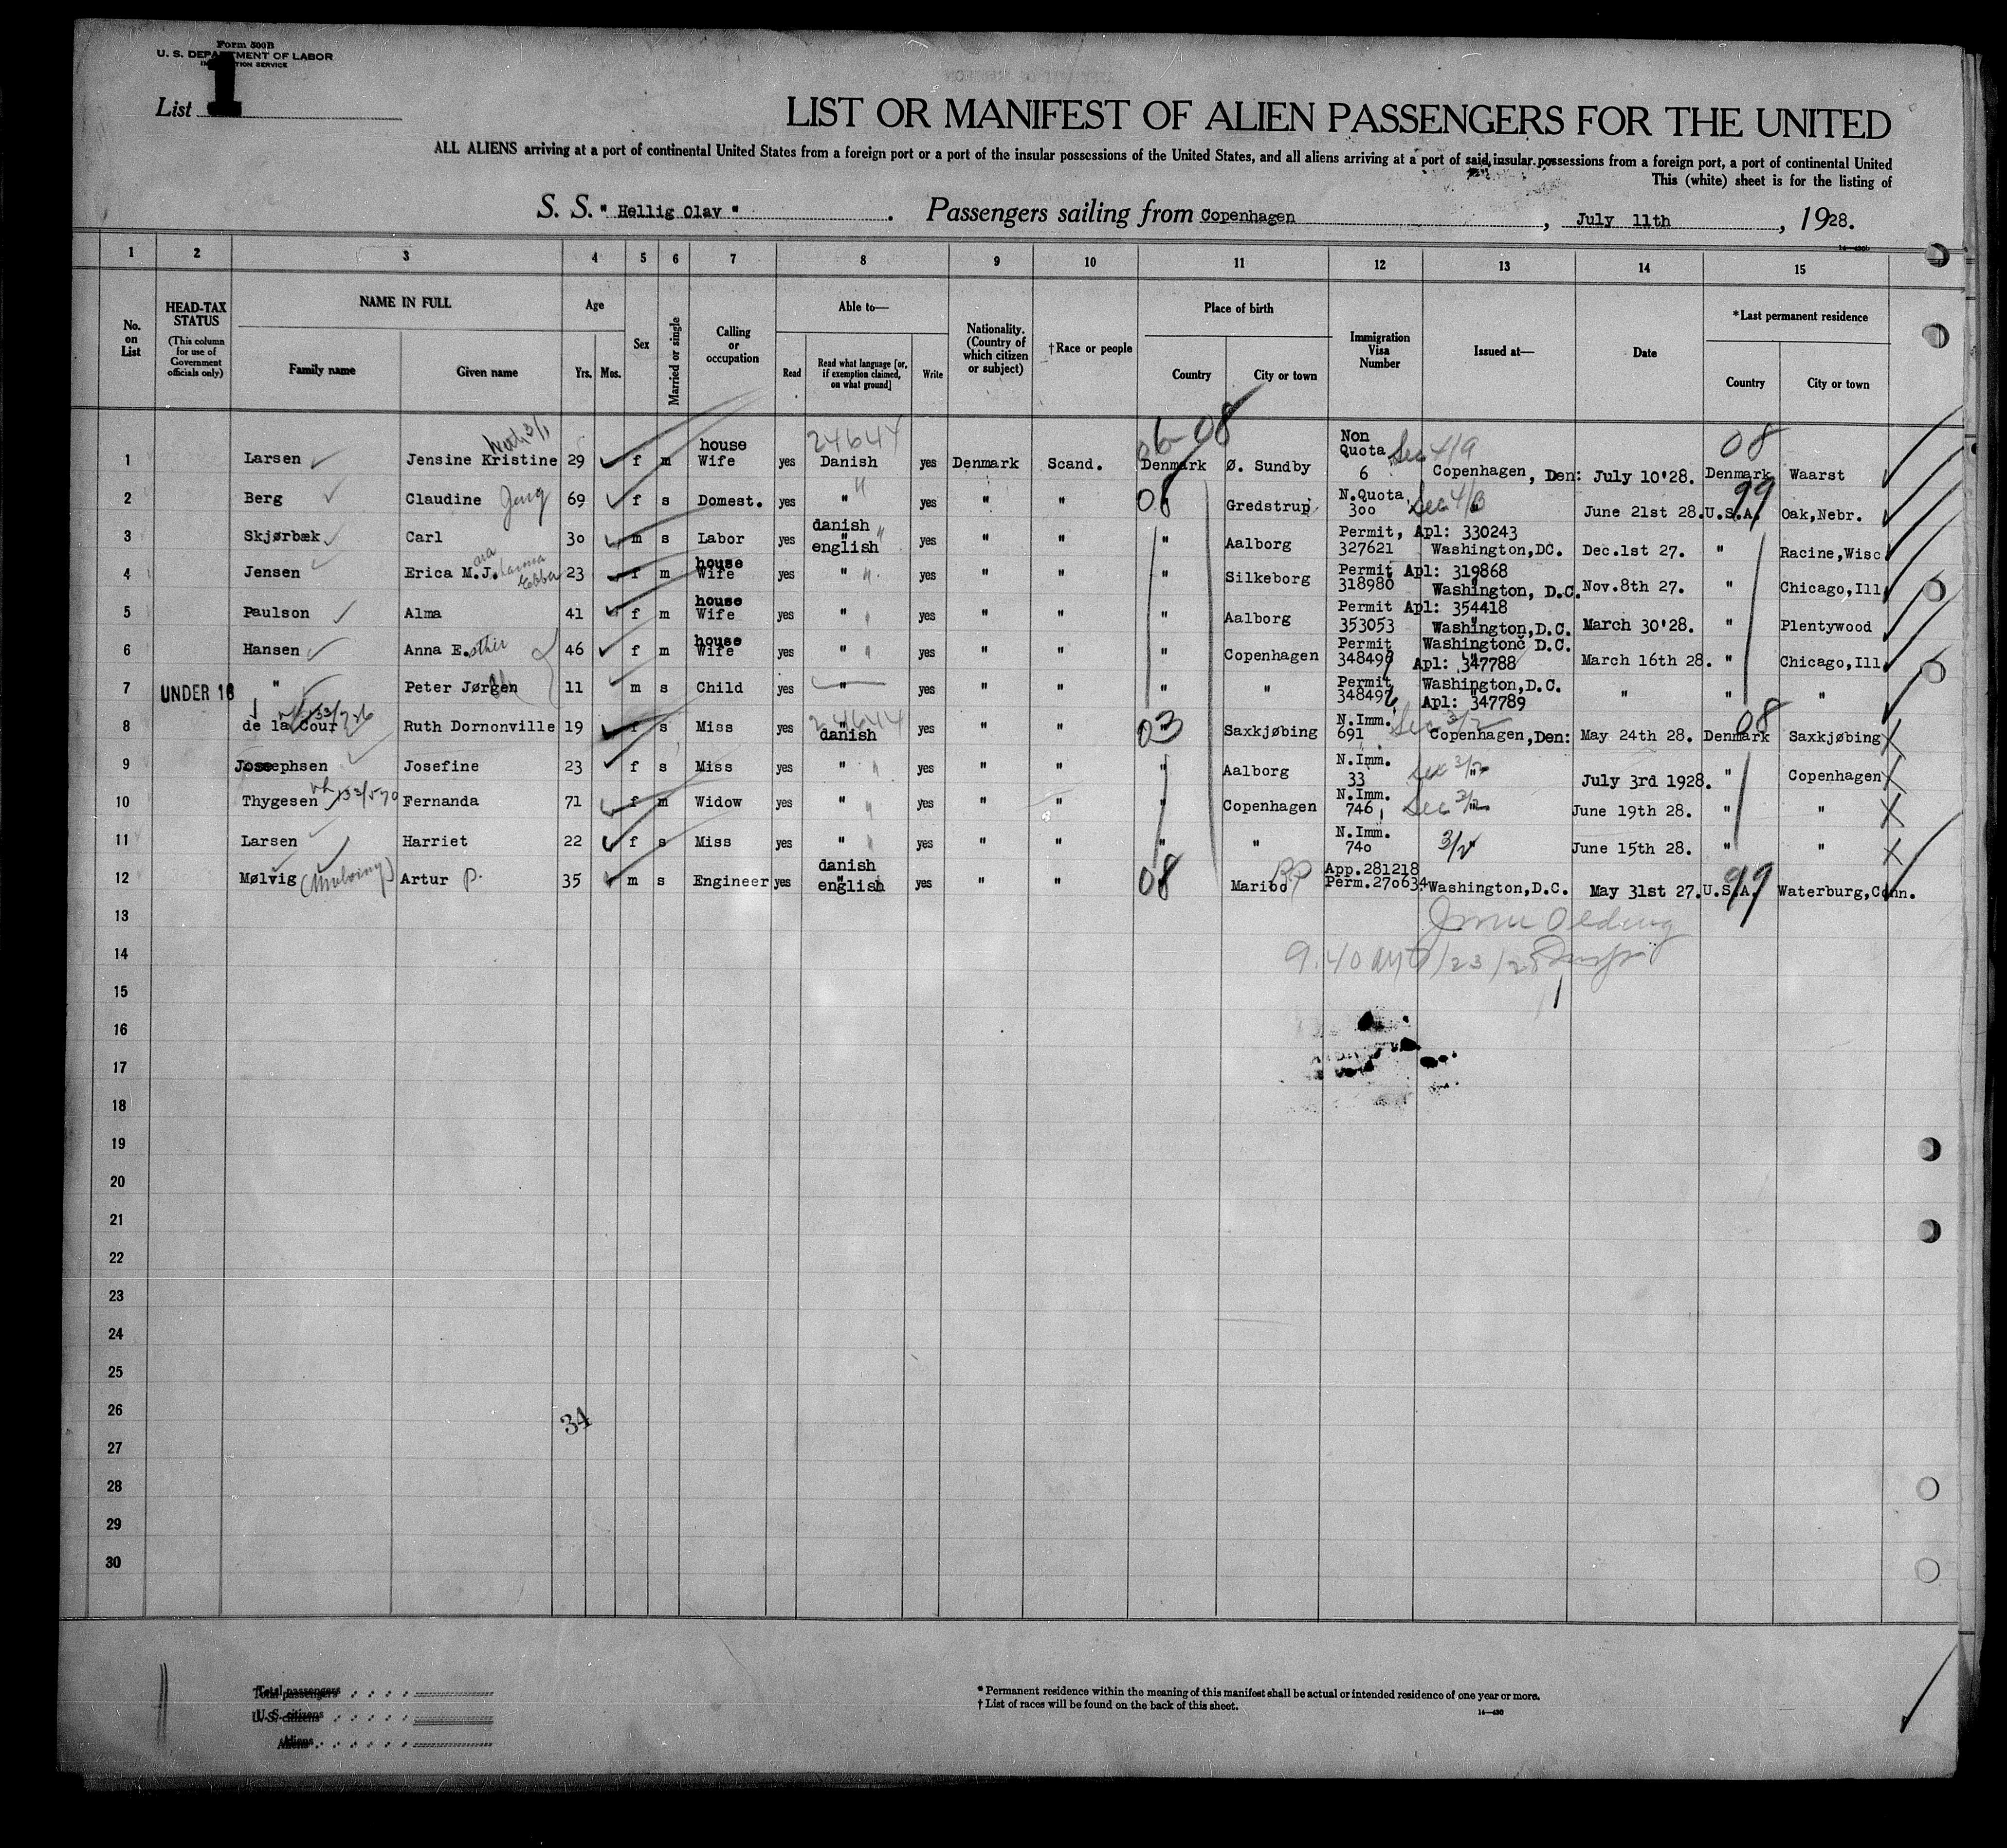 Form 500B
U. S. DEPARTMENT OF LABOR
List 1
LIST OR MANIFEST OF ALIEN PASSENGERS FOR THE UNITED
ALL ALIENS arriving at a port of continental United States from a foreign port or a port of the insular possessions of the United States, and all aliens arriving at a port of said insular possessions from a foreign port, a port of continental United
This (white) sheet is for the listing of
S. S. " Hellig Olav " . Passengers sailing from Copenhagen , July 11th , 1928.
1 2 3 4 5 6 7 8 9 10 11 12 13 14 15
No. on List
HEAD-TAX STATUS
(This column for use of Government officials only)
NAME IN FULL
Family name Given name
Age
Yrs. Mos.
Sex
Married or single
Calling or occupation
Able to—
Read Read what language [or, if exemption claimed, on what ground] Write
Nationality. (Country of which citizen or subject)
†Race or people
Place of birth
Country City or town
Immigration Visa Number
Issued at—
Date
*Last permanent residence
Country City or town
24644 08 08
1 Larsen Jensine Kristine 29 f m house Wife yes Danish yes Denmark Scand. Denmark Ø. Sundby Non Quota 6 Sec 4/9 Copenhagen, Den: July 10'28. Denmark Waarst
2 Berg Claudine 69 f s Domest. yes " yes " " 08 Gredstrup N.Quota 300 June 21st 28. U.S.A. 99 Oak,Nebr.
3 Skjørbæk Carl 30 m s Labor yes danish " english yes " " " Aalborg Permit, Apl: 330243 327621 Washington,DC. Dec.1st 27. " Racine,Wisc
4 Jensen Erica M.J. Ebba 23 f m house Wife yes " yes " " " Silkeborg Permit Apl: 319868 318980 Washington, D.C. Nov.8th 27. " Chicago,Ill
5 Paulson Alma 41 f m house Wife yes " yes " " " Aalborg Permit Apl: 354418 353053 Washington,D.C. March 30'28. " Plentywood
6 Hansen Anna E.sther 46 f m house Wife yes " yes " " " Copenhagen Permit Washington D.C. Apl: 347788 March 16th 28. " Chicago,Ill
7 UNDER 16 " Peter Jørgen 11 m s Child yes " yes " " " " Permit 348496 Washington,D.C. Apl: 347789 " " "
8 de la Cour Ruth Dornonville 19 f s Miss yes 24644 " danish yes " " 03 Saxkjøbing N.Imm. 691 Sec 3/2 Copenhagen,Den: May 24th 28. Denmark 08 Saxkjøbing X
9 Josephsen Josefine 23 f s Miss yes " yes " " " Aalborg N.Imm. 33 Sec 3/2 " July 3rd 1928. " Copenhagen X
10 Thygesen Fernanda 71 f m Widow yes " yes " " " Copenhagen N.Imm. 746 Sec 3/2 " June 19th 28. " " X
11 Larsen Harriet 22 f s Miss yes " yes " " " " N.Imm. 740 3/2 June 15th 28. " " X
12 Mølvig Artur P. 35 m s Engineer yes danish " english yes " " 08 Maribo App.281218 Perm.270634. Washington,D.C. May 31st 27. U.S.A. 99 Waterburg,Conn.
13
14
15
16
17
18
19
20
21
22
23
24
25
26
34
27
28
29
30
Total passengers
U. S. citizens
Aliens
* Permanent residence within the meaning of this manifest shall be actual or intended residence of one year or more.
† List of races will be found on the back of this sheet.